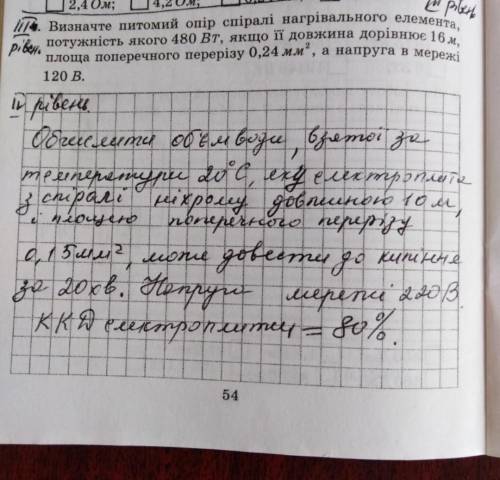 2,4 Ом; 4,2 Ом;
ІІІ рівень
ІІІ рівень. Визначте питомий опір спіралі нагрівального елемента,
потужність якого 480 Вт, якщо її довжина дорівнює 16 м,
площа поперечного перерізу 0,24 мм², а напруга в мережі
120 В.
IV рівень.
Обчислити об'єм води, взятої за
температури 20°С, яку електроплитка
з спіралі ніхрому довжиною 10 м,
і площею поперечного перерізу
0,15 мм², може довести до кипіння
за 20 хв. Напруга мережі 220 В.
ККД електроплитки = 80%.
54